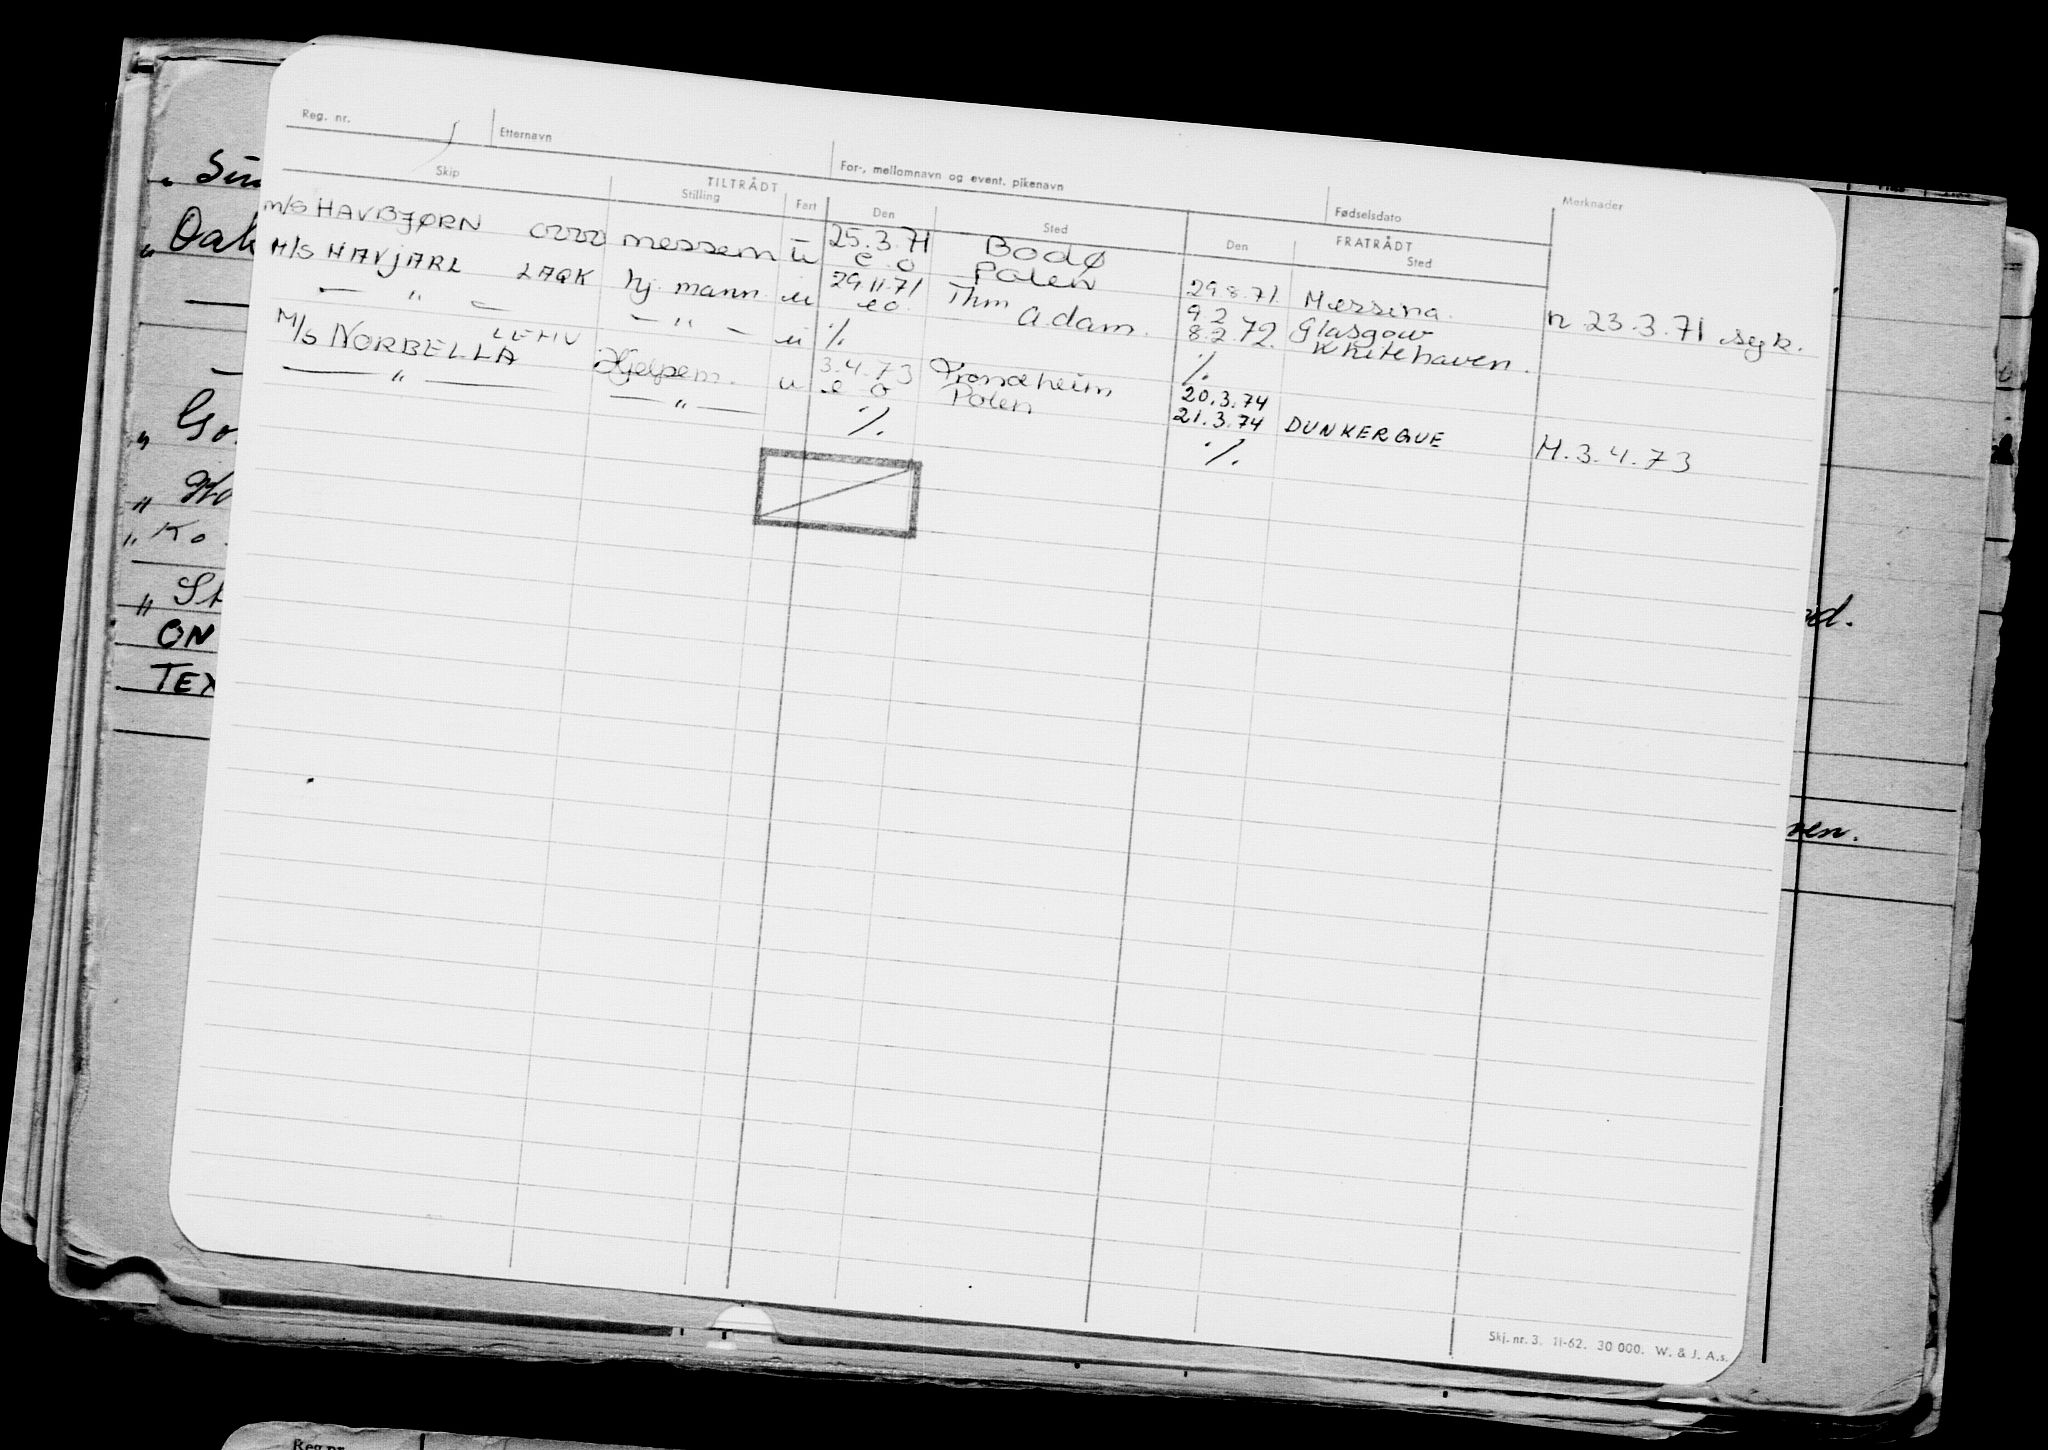 Reg. nr. Etternavn For-, mellomnavn og event. pikenavn Fødselsdato Merknader
TILTRÅDT FRATRÅDT
Skip Stilling Fart Den Sted Den Sted
M/S HAVBJØRN messem u 25.3.71 Bodø 29.8.71. Messina. n. 23.3.71 syk.
e o Polen 9 2 Glasgow
M/S HAVJARL LAQK hj. mann u 29.11.71 Thm 8.2.72. Whitehaven.
— " — — " — u eo A.dam. ./.
./.
M/S NORBELLA LEMV Hjelpem. u 3.4.73 Trondheim 20.3.74
e o Polen 21.3.74 DUNKERQUE M. 3.4.73
— " — — " — ./. ./.
Skj. nr. 3. 11-62. 30 000. W. & J. A.s.
" Go
" Ko
ON
TEX
nd.
Reg.nr.